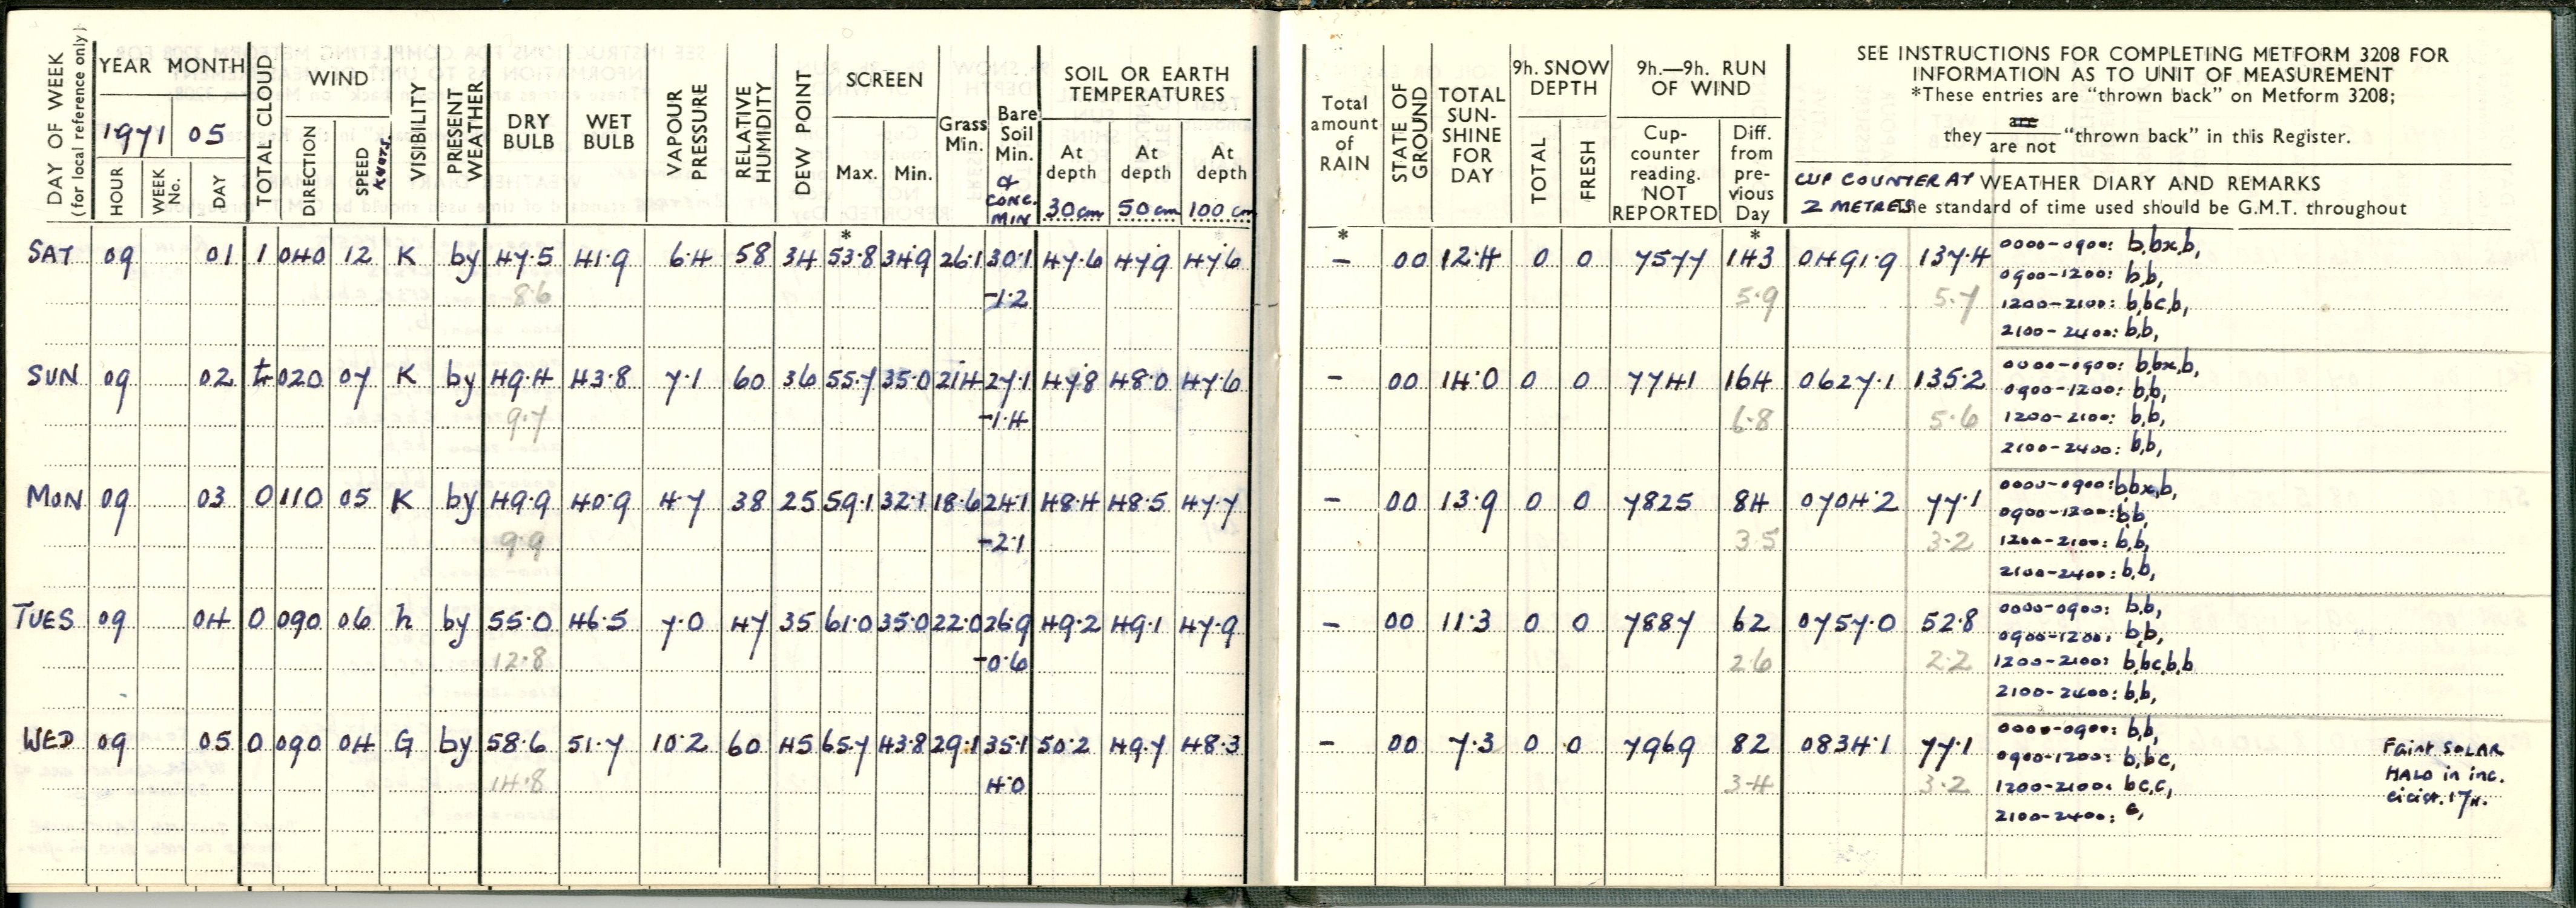 DAY OF WEEK (for local reference only)
YEAR MONTH
1971 05
HOUR WEEK No. DAY
TOTAL CLOUD
WIND
DIRECTION SPEED KNOTS
VISIBILITY
PRESENT WEATHER
DRY BULB
WET BULB
VAPOUR PRESSURE
RELATIVE HUMIDITY
DEW POINT
SCREEN
Max. Min.
Grass Min.
Bare Soil Min. & CONC. MIN
SOIL OR EARTH TEMPERATURES
At depth 30 cm At depth 50 cm At depth 100 cm
Total amount of RAIN
STATE OF GROUND
TOTAL SUN-SHINE FOR DAY
9h. SNOW DEPTH
TOTAL FRESH
9h.—9h. RUN OF WIND
Cup-counter reading. NOT REPORTED
Diff. from pre-vious Day
SEE INSTRUCTIONS FOR COMPLETING METFORM 3208 FOR
INFORMATION AS TO UNIT OF MEASUREMENT
*These entries are "thrown back" on Metform 3208;
they are / are not "thrown back" in this Register.
CUP COUNTER AT WEATHER DIARY AND REMARKS
2 METRES The standard of time used should be G.M.T. throughout
* * * *
SAT 09 01 1 040 12 K by 47.5 41.9 6.4 58 34 53.8 34.9 26.1 30.1 47.6 47.9 47.6 – 00 12.4 0 0 7577 143 0491.9 137.4 0000-0900: b,bx,b,
0900-1200: b,b,
8.6 -1.2 5.9 5.7 1200-2100: b,bc,b,
2100-2400: b,b,
SUN 09 02 020 07 K by 49.4 43.8 7.1 60 36 55.7 35.0 21.4 27.1 47.8 48.0 47.6 – 00 14.0 0 0 7741 164 0627.1 135.2 0000-0900: b,bx,b,
0900-1200: b,b,
9.7 -1.4 6.8 5.6 1200-2100: b,b,
2100-2400: b,b,
MON 09 03 0 110 05 K by 49.9 40.9 4.7 38 25 59.1 32.1 18.6 24.1 48.4 48.5 47.7 – 00 13.9 0 0 7825 84 0704.2 77.1 0000-0900: b,bx,b,
0900-1200: b,b,
9.9 -2.1 3.5 3.2 1200-2100: b,b,
2100-2400: b,b,
TUES 09 04 0 090 06 h by 55.0 46.5 7.0 47 35 61.0 35.0 22.0 26.9 49.2 49.1 47.9 – 00 11.3 0 0 7887 62 0757.0 52.8 0000-0900: b,b,
0900-1200: b,b,
12.8 -0.6 2.6 2.2 1200-2100: b,bc,b,b
2100-2400: b,b,
WED 09 05 0 090 04 G by 58.6 51.7 10.2 60 45 65.7 43.8 29.1 35.1 50.2 49.7 48.3 – 00 7.3 0 0 7969 82 0834.1 77.1 0000-0900: b,b,
0900-1200: b,bc, Faint SOLAR
14.8 4.0 3.4 3.2 1200-2100: bc,c, HALO in inc.
2100-2400: c, cicist. 17H.